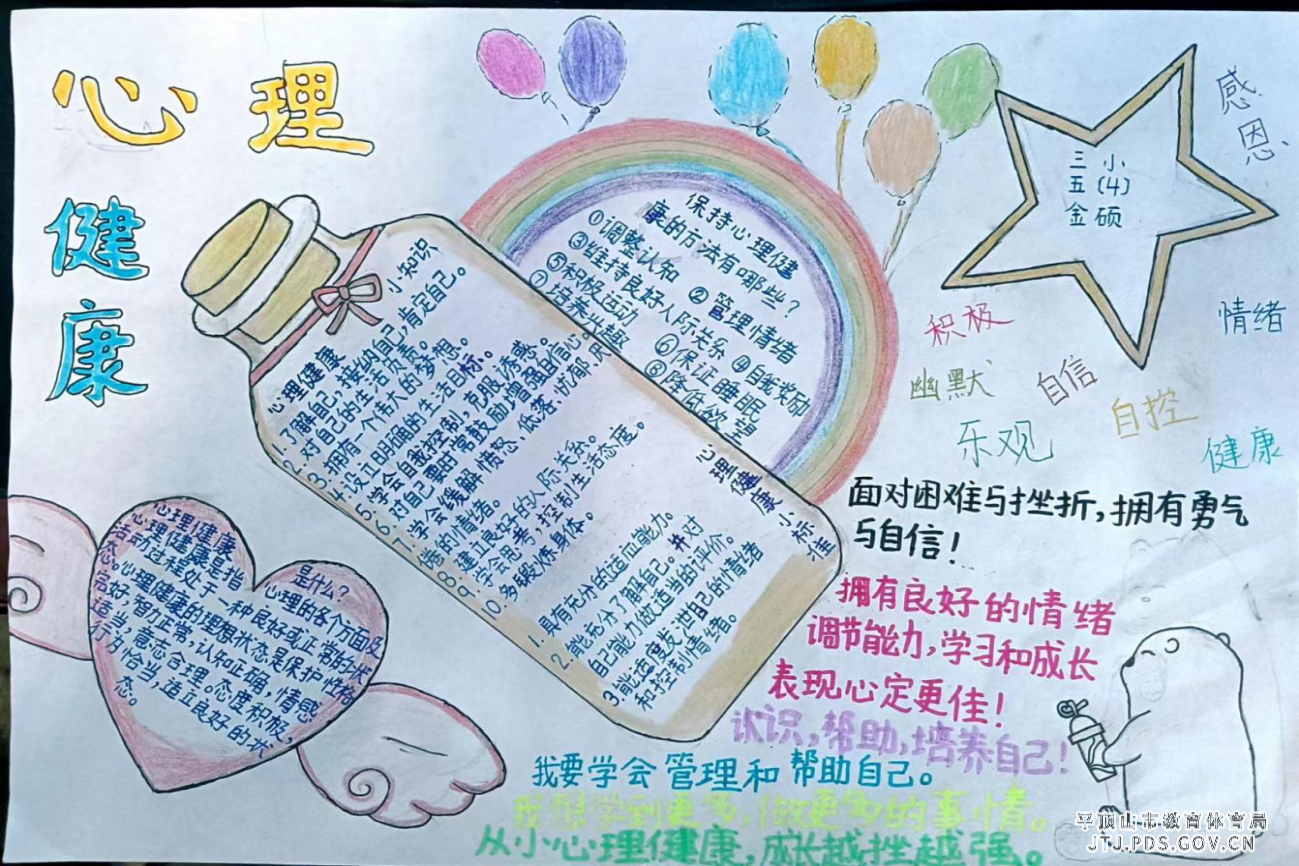 心理
健
康
感
恩
三小
五(4)
金硕
保持心理健
康的方法有哪些?
①调整认知 ②管理情绪
③维持良好人际关乐 ④自我奖励
⑤积极运动 ⑥保证睡眠
⑦培养兴趣 ⑧降低欲望
积极
情绪
幽默
自信
自控
乐观
健康
心理健康 小知识
1.了解自己,接纳自己,肯定自己。
2.对自己的生活负责。
3.拥有一个伟大的梦想。
4.设立明确的生活目标。
5.学会自我控制,克服诱惑。
6.对自己要时常鼓励,增强自信心。
7.学会缓解愤怒、低落、忧郁、厌
倦的情绪。
8.建立良好的人际关系。
9.学会思考,控制生活态度。
10.多锻炼身体。
心理健康小标准
1.具有充分的适应能力。
2.能充分了解自己。并对
自己能力做适当的评价。
3.能适度发泄自己的情绪
和控制情绪。
心理健康 是什么?
心理健康是指心理的各个方面及
活动过程处于一种良好或正常的状
态。心理健康的理想状态是保护性格
完好,智力正常,认知正确,情感
适当,意志合理。态度积极,
行为恰当,适应良好的状
态。
面对困难与挫折,拥有勇气
与自信!
拥有良好的情绪
调节能力,学习和成长
表现心定更佳!
认识,帮助,培养自己!
我要学会管理和帮助自己。
我想学到更多,做更多的事情。
从小心理健康,成长越挫越强。
平顶山市教育体育局
JTJ.PDS.GOV.CN